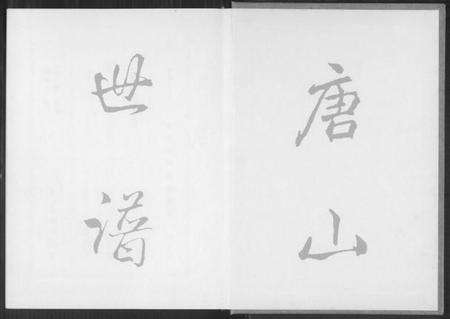 唐山
世谱